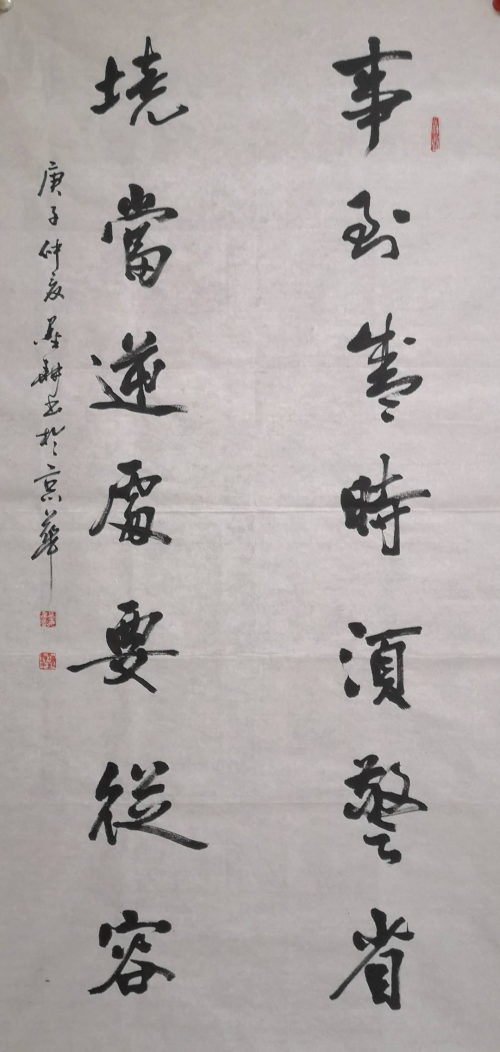 事到盛時須警省
境當逆處要從容
庚子仲夏墨耕书於京華